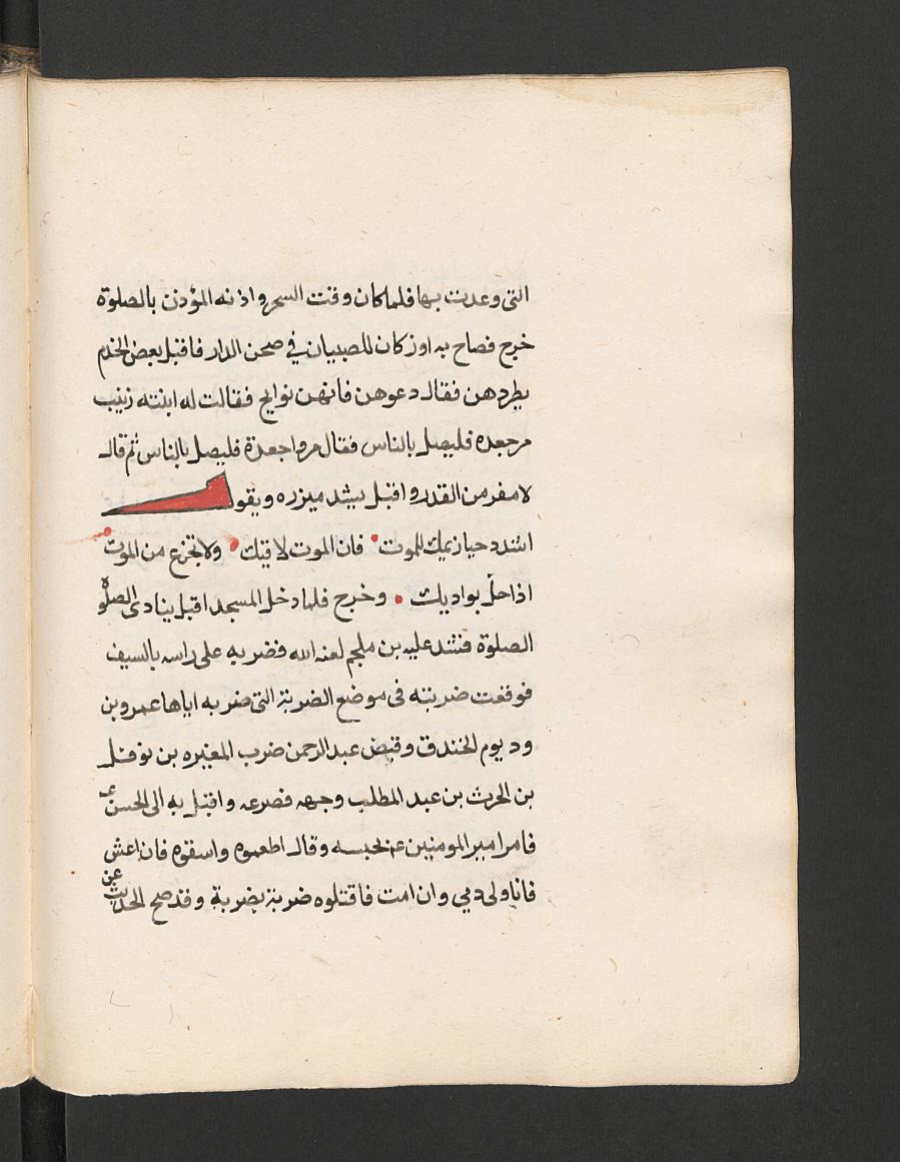 التى وعدت بها فلما كان وقت السحر واذنه المؤذن بالصلوة
خرج فصاح به اوز كان للصبيان في صحن الدار فاقبل بعض الخدم
يطردهن فقال دعوهن فانهن نوايح فقالت له ابنته زينب
مر جعده فليصل بالناس فقال مروا جعدة فليصل بالناس ثم قال
لا مفر من القدر واقبل يشد ميزره ويقول
اشدد حيازيمك للموت فان الموت لاقيك ولا تجزع من الموت
اذا حل بواديك وخرج فلما دخل المسجد اقبل ينادى الصلوة
الصلوة فشد عليه بن ملجم لعنه الله فضربه على راسه بالسيف
فوقعت ضربته فى موضع الضربة التى ضربه اياها عمرو بن
ود يوم الخندق وقبض عبد الرحمن ضرب المغيره بن نوفل
بن الحرث بن عبد المطلب وجهه فصرعه واقبل به الى الحسن ع
فامر امير المومنين ع بحبسه وقال اطعموه واسقوه فان اعش
فانا ولى دمي وان امت فاقتلوه ضربة بضربة وقد صح الحديث عن